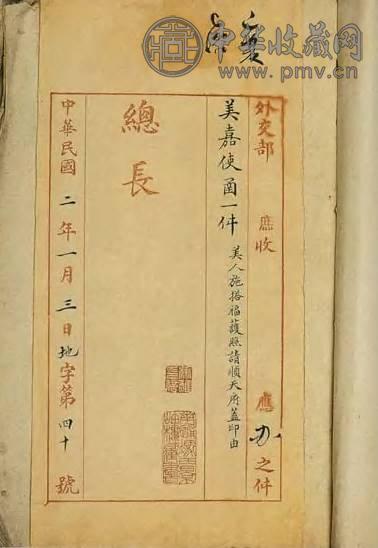 中华收藏网
www.pmv.cn
外交部 庶收 應办之件
美嘉使函一件
美人施搭福護照請順天府蓋印由
總長
中華民國二年一月三日地字第四十號